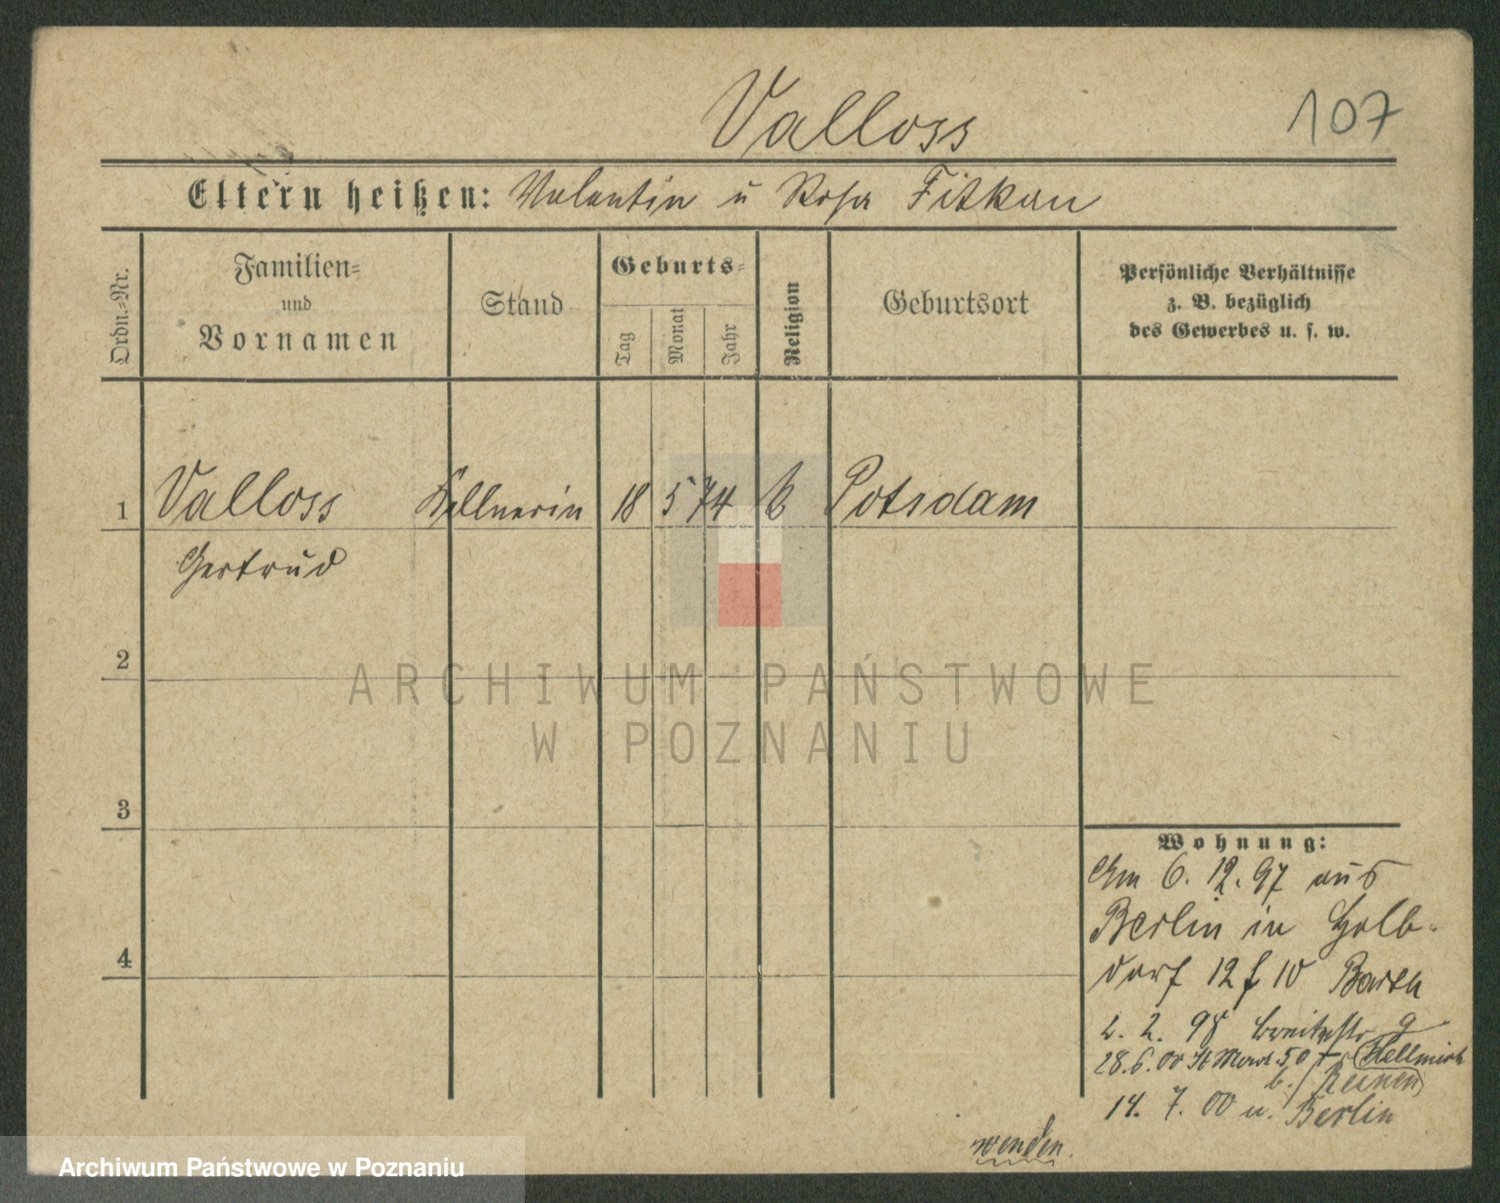 Valloss
107
Eltern heißen: Valentin u Rosa Fitkau
Ordn.-Nr.
Familien-
und
Vornamen
Stand
Geburts-
Tag
Monat
Jahr
Religion
Geburtsort
Persönliche Verhältnisse
z. B. bezüglich
des Gewerbes u. s. w.
1 Valloss Kellnerin 18 5 74 k Potsdam
Gertrud
2
3
4
Wohnung:
Am 6. 12. 97 aus
Berlin in Golb-
dorf 12 f 10 Barth
2. 2. 98 Breitestr 9
28.6.00 St Mart. 50 Hellmich
b. Reinen
14. 7. 00 u. Berlin
wenden.
ARCHIWUM PAŃSTWOWE
W POZNANIU
Archiwum Państwowe w Poznaniu